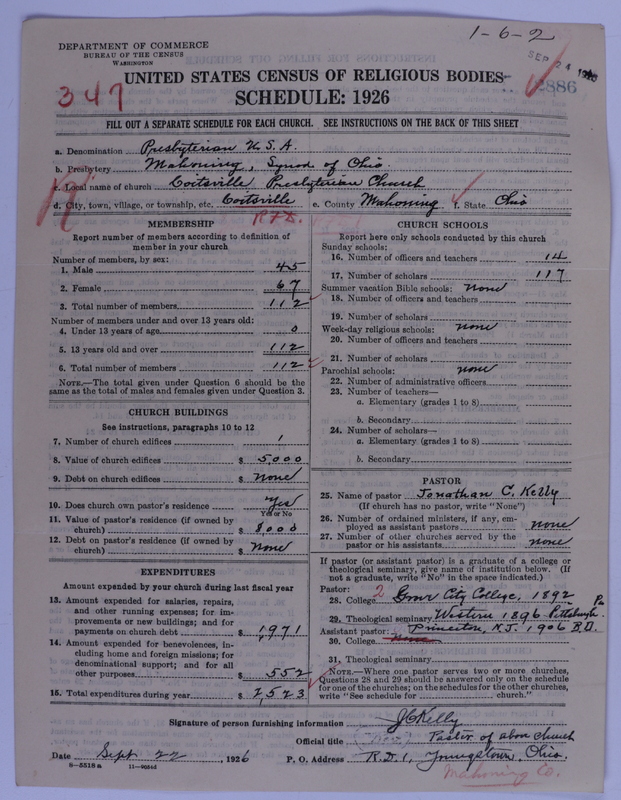 1-6-2
DEPARTMENT OF COMMERCE
BUREAU OF THE CENSUS
WASHINGTON
SEP 24
UNITED STATES CENSUS OF RELIGIOUS BODIES
347
SCHEDULE: 1926
FILL OUT A SEPARATE SCHEDULE FOR EACH CHURCH. SEE INSTRUCTIONS ON THE BACK OF THIS SHEET
a. Denomination Presbyterian U.S.A.
b. Presbytery Mahoning, Synod of Ohio
c. Local name of church Coitsville, Presbyterian Church
d. City, town, village, or township, etc. Coitsville e. County Mahoning f. State Ohio
R.F.D.
MEMBERSHIP
Report number of members according to definition of
member in your church
Number of members, by sex:
1. Male 45
2. Female 67
3. Total number of members 112
Number of members under and over 13 years old:
4. Under 13 years of age 0
5. 13 years old and over 112
6. Total number of members 112
NOTE.—The total given under Question 6 should be the
same as the total of males and females given under Question 3.
CHURCH BUILDINGS
See instructions, paragraphs 10 to 12
7. Number of church edifices 1
8. Value of church edifices $ 5,000
9. Debt on church edifices $ none
10. Does church own pastor's residence yes
Yes or No
11. Value of pastor's residence (if owned by
church) $ 8,000
12. Debt on pastor's residence (if owned by
church) $ none
EXPENDITURES
Amount expended by your church during last fiscal year
13. Amount expended for salaries, repairs,
and other running expenses; for im-
provements or new buildings; and for
payments on church debt $ 1,971
14. Amount expended for benevolences, in-
cluding home and foreign missions; for
denominational support; and for all
other purposes $ 552
15. Total expenditures during year $ 2,523
CHURCH SCHOOLS
Report here only schools conducted by this church
Sunday schools:
16. Number of officers and teachers 14
17. Number of scholars 117
Summer vacation Bible schools: none
18. Number of officers and teachers
19. Number of scholars
Week-day religious schools: none
20. Number of officers and teachers
21. Number of scholars
Parochial schools: none
22. Number of administrative officers
23. Number of teachers—
a. Elementary (grades 1 to 8)
b. Secondary
24. Number of scholars—
a. Elementary (grades 1 to 8)
b. Secondary
PASTOR
25. Name of pastor Jonathan C. Kelly
(If church has no pastor, write "None")
26. Number of ordained ministers, if any, em-
ployed as assistant pastors none
27. Number of other churches served by the
pastor or his assistants none
If pastor (or assistant pastor) is a graduate of a college or
theological seminary, give name of institution below. (If
not a graduate, write "No" in the space indicated.)
Pastor:
28. College 2 Grove City College, 1892
29. Theological seminary Western 1896 Pittsburgh Pa
Assistant pastor: Princeton, N.J. 1906 B.D.
30. College
31. Theological seminary
NOTE.—Where one pastor serves two or more churches,
Questions 28 and 29 should be answered only on the schedule
for one of the churches; on the schedules for the other churches,
write "See schedule for church."
Signature of person furnishing information J C Kelly
Official title Pastor of above church
Date Sept. 22, 1926 P. O. Address R.D. 1, Youngstown, Ohio.
8—5518 a
Mahoning Co.